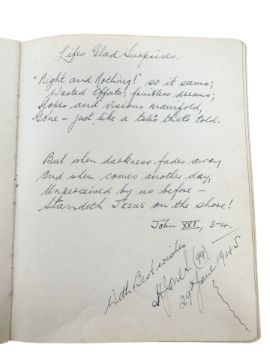 Lifes Glad Surprises.
"Night and Nothing!" so it seems;
Wasted Efforts! fruitless dreams;
Hopes and visions manifold,
Gone - just like a tale that's told.
But when darkness fades away
And when comes another day,
Unperceived by us before -
Standeth Jesus on the shore!
John XXI, 3-4.
With Best wishes
29th June 1945